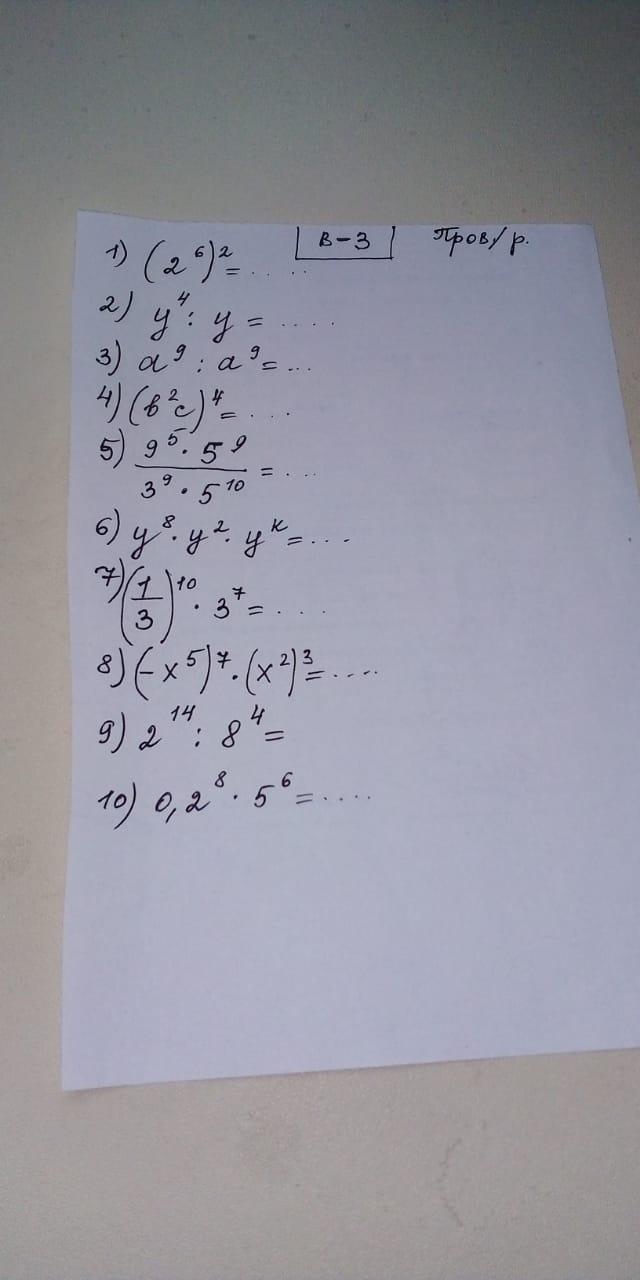 В-3 Пров/р.
1) (2⁶)² = ....
2) y⁴ : y = ....
3) a⁹ : a⁹ = ...
4) (в²с)⁴ = ...
5) (9⁵ · 5⁹)/(3⁹ · 5¹⁰) = ...
6) y⁸ · y² · yᵏ = ...
7) (1/3)¹⁰ · 3⁷ = ....
8) (-x⁵)⁷ · (x²)³ = ....
9) 2¹⁴ : 8⁴ =
10) 0,2⁸ · 5⁶ = ....